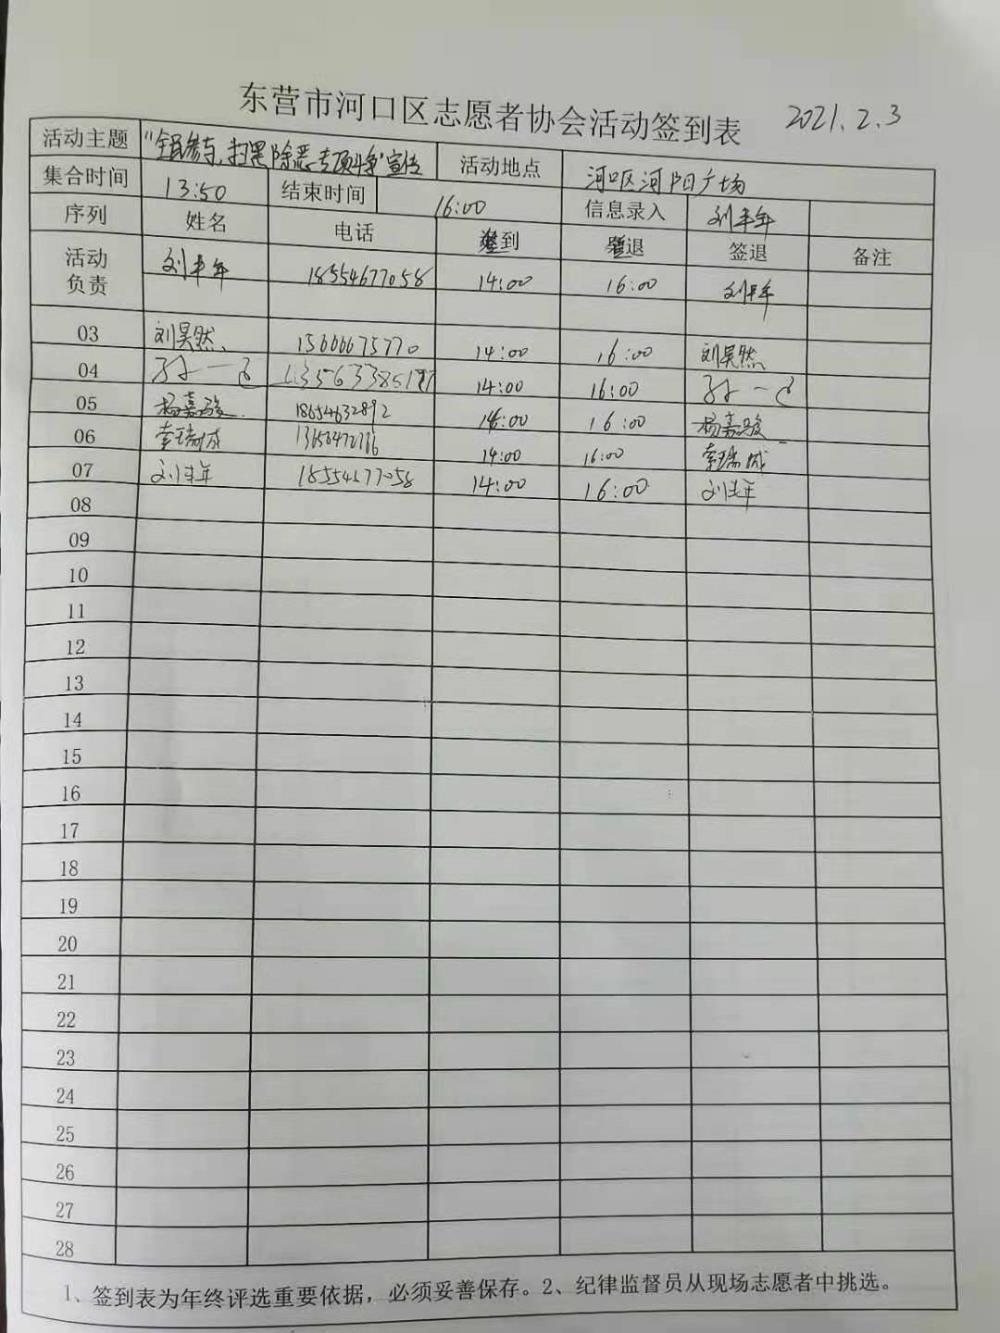 东营市河口区志愿者协会活动签到表 2021.2.3
活动主题 "全民参与,扫黑除恶专项斗争"宣传 活动地点 河口区河阳广场
集合时间 13:50 结束时间 16:00 信息录入 刘丰年
序列 姓名 电话 签到 签退 签退 备注
活动负责 刘丰年 18554677058 14:00 16:00 刘丰年
03 刘昊然 15666675770 14:00 16:00 刘昊然
04 14:00 16:00
05 杨嘉骏 18654632892 14:00 16:00 杨嘉骏
06 李瑞成 14:00 16:00 李瑞成
07 14:00 16:00
08
09
10
11
12
13
14
15
16
17
18
19
20
21
22
23
24
25
26
27
28
1、签到表为年终评选重要依据，必须妥善保存。2、纪律监督员从现场志愿者中挑选。